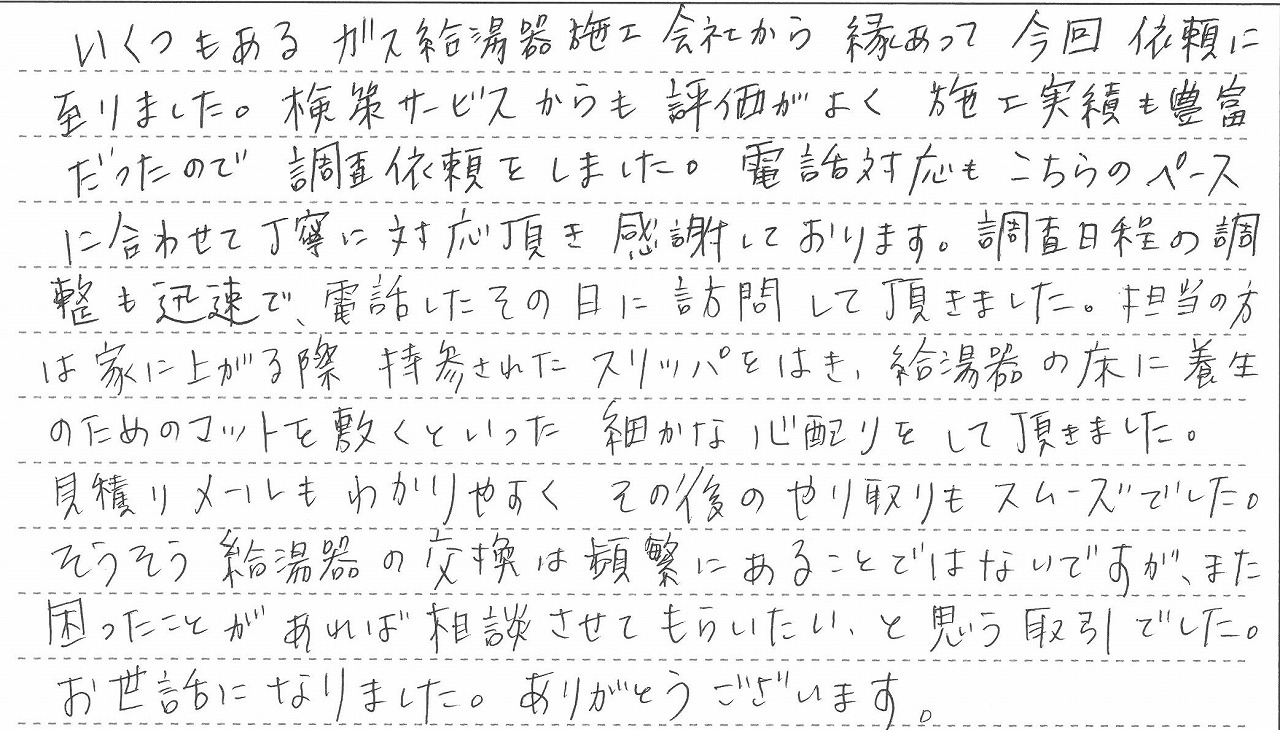 いくつもある ガス給湯器施工会社から 縁あって 今回 依頼に
至りました。検策サービスからも 評価がよく 施工実績も豊富
だったので 調査依頼をしました。電話対応も こちらのペース
に合わせて丁寧に対応頂き 感謝しております。調査日程の調
整も迅速で、電話したその日に訪問して頂きました。担当の方
は家に上がる際 持参されたスリッパをはき、給湯器の床に養生
のためのマットを敷くといった 細かな心配りをして頂きました。
見積りメールもわかりやすく その後のやり取りもスムーズでした。
そうそう給湯器の交換は頻繁にあることではないですが、また
困ったことがあれば相談させてもらいたい、と思う取引でした。
お世話になりました。ありがとうございます。